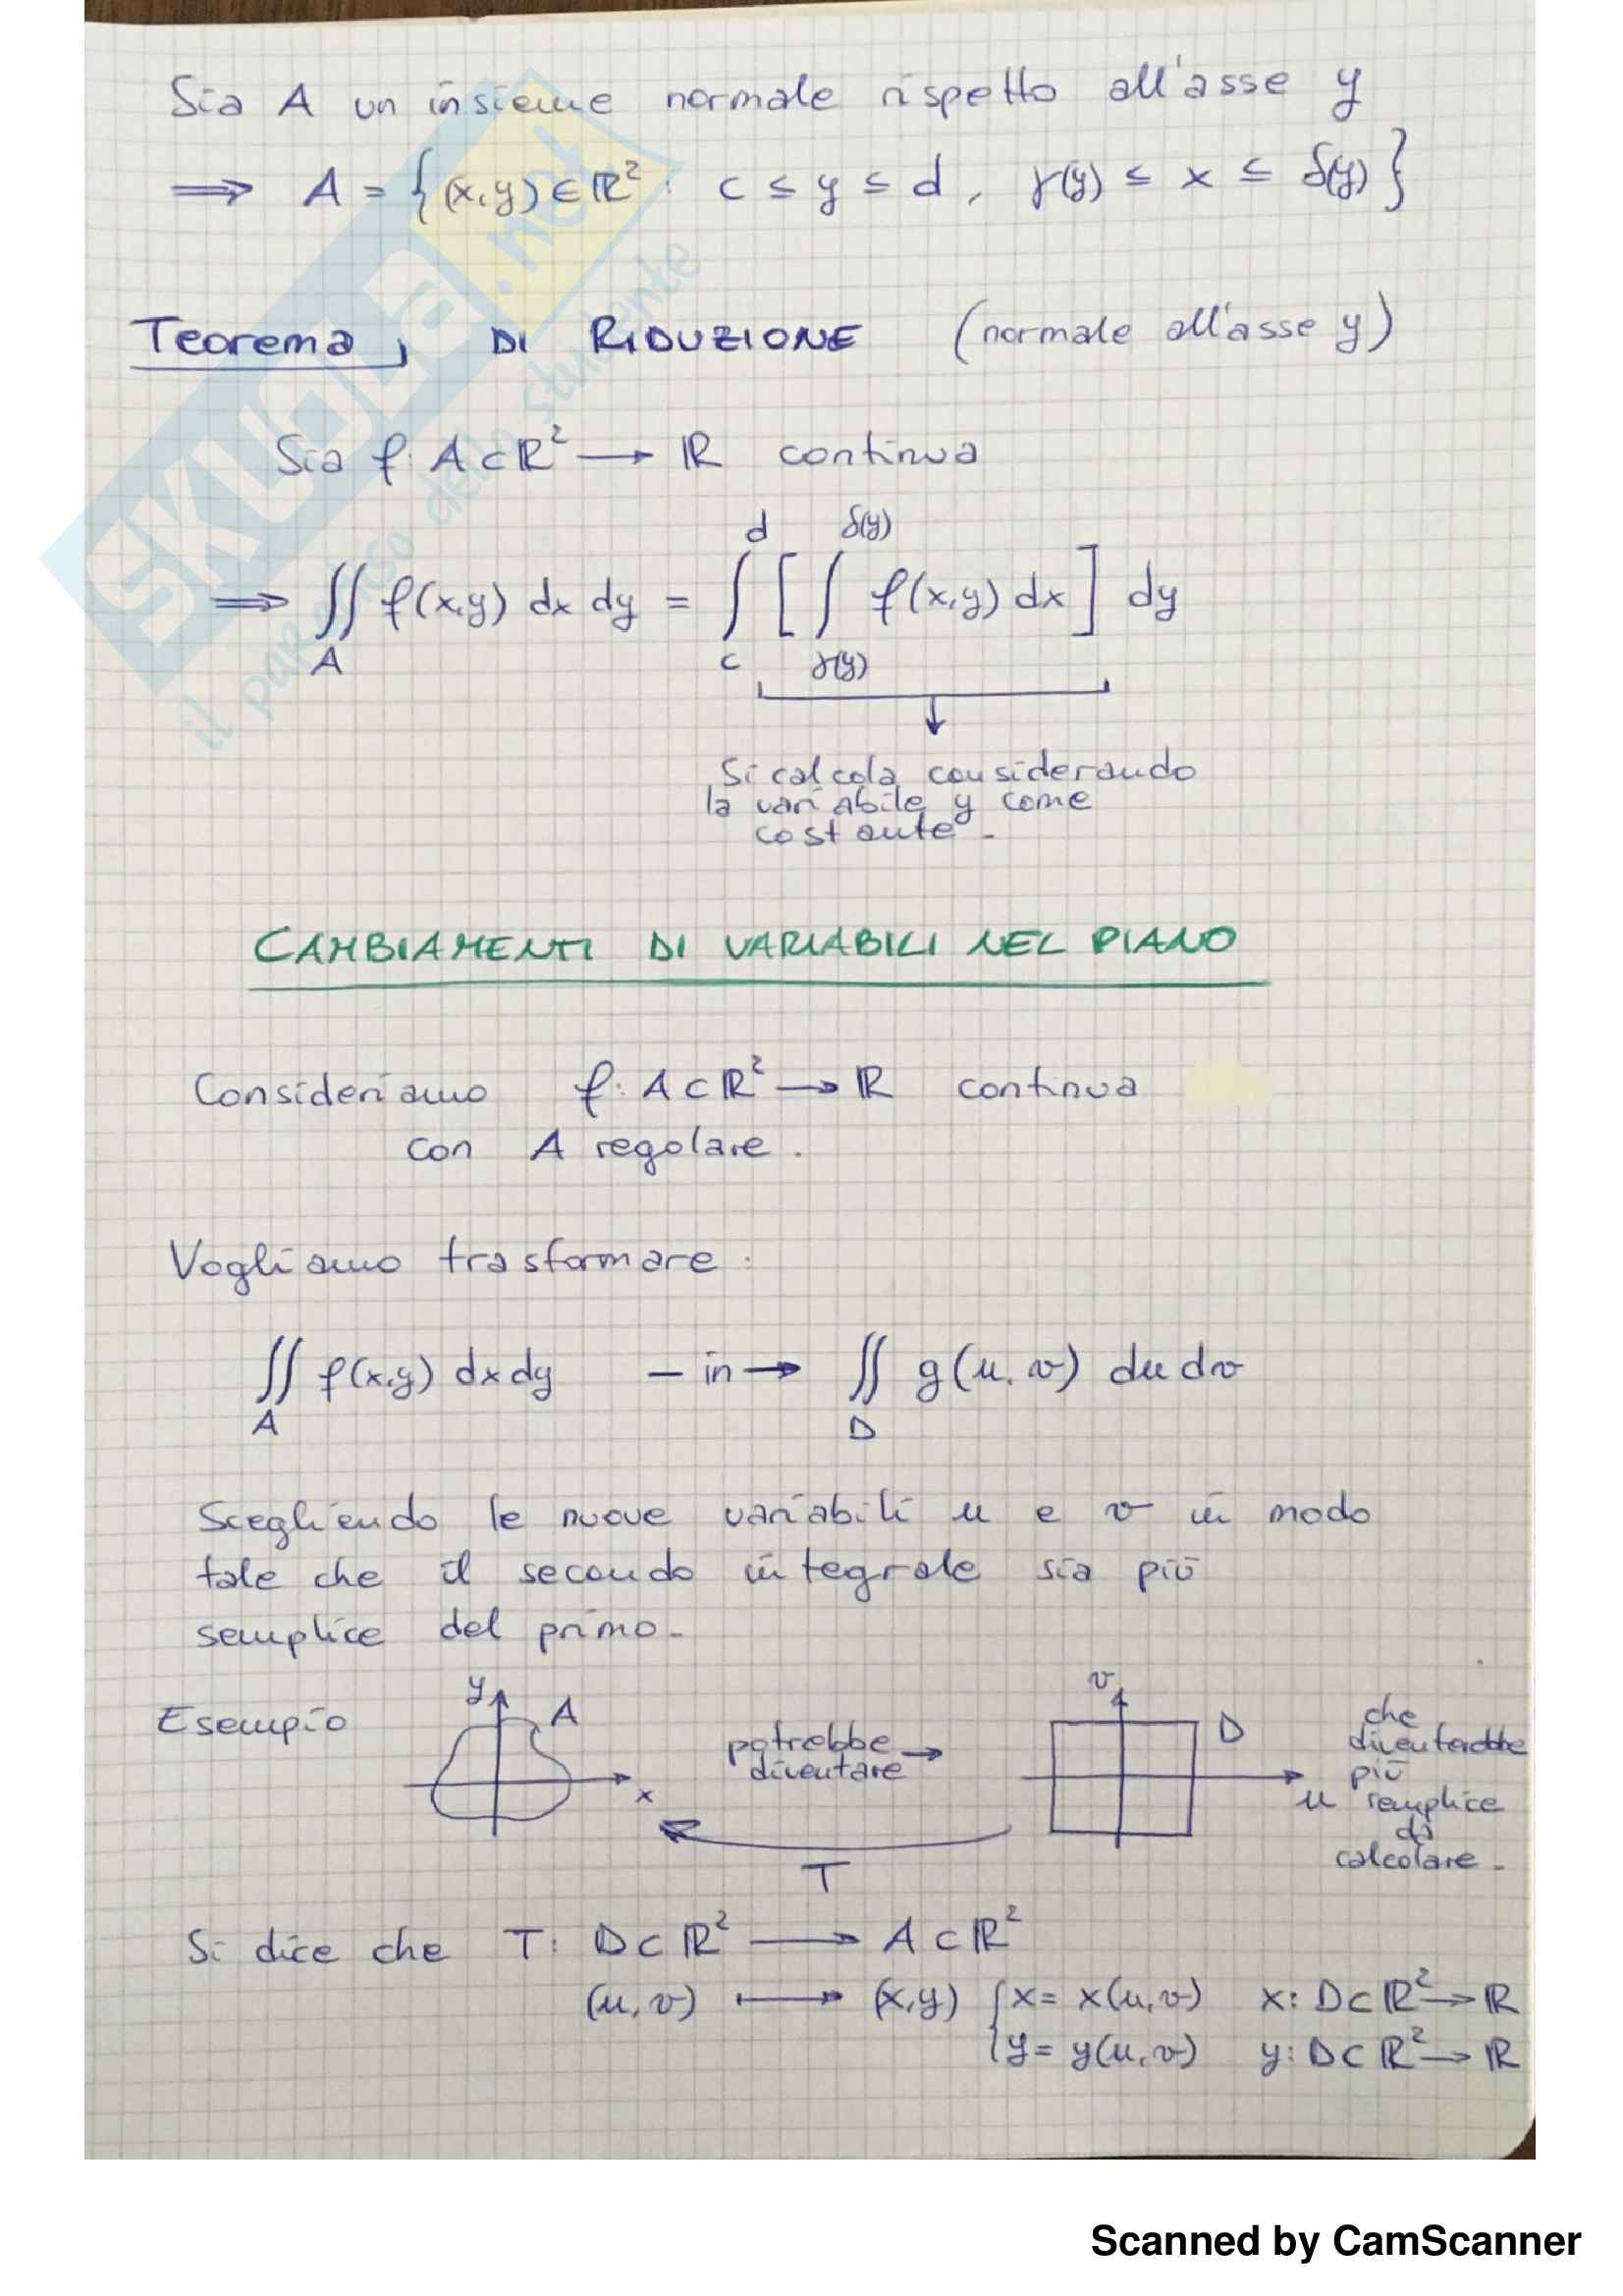 Sia A un insieme normale rispetto all'asse y
⟹ A = { (x,y) ∈ ℝ² : c ≤ y ≤ d , γ(y) ≤ x ≤ δ(y) }
Teorema DI RIDUZIONE (normale all'asse y)
Sia f: A ⊂ ℝ² → ℝ continua
⟹ ∬_A f(x,y) dx dy = ∫_c^d [ ∫_γ(y)^δ(y) f(x,y) dx ] dy
Si calcola considerando
la variabile y come
costante.
CAMBIAMENTI DI VARIABILI NEL PIANO
Consideriamo f: A ⊂ ℝ² → ℝ continua
con A regolare.
Vogliamo trasformare:
∬_A f(x,y) dx dy — in → ∬_D g(u,v) du dv
Scegliendo le nuove variabili u e v in modo
tale che il secondo integrale sia più
semplice del primo.
Esempio
y
A
x
potrebbe →
diventare
T
v
D
u
che
diventerebbe
più
semplice
da
calcolare.
Si dice che T: D ⊂ ℝ² ⟶ A ⊂ ℝ²
(u,v) ⟼ (x,y) { x = x(u,v) x: D ⊂ ℝ² → ℝ
y = y(u,v) y: D ⊂ ℝ² → ℝ
SKUOLA.net
il paradiso dello studente
Scanned by CamScanner